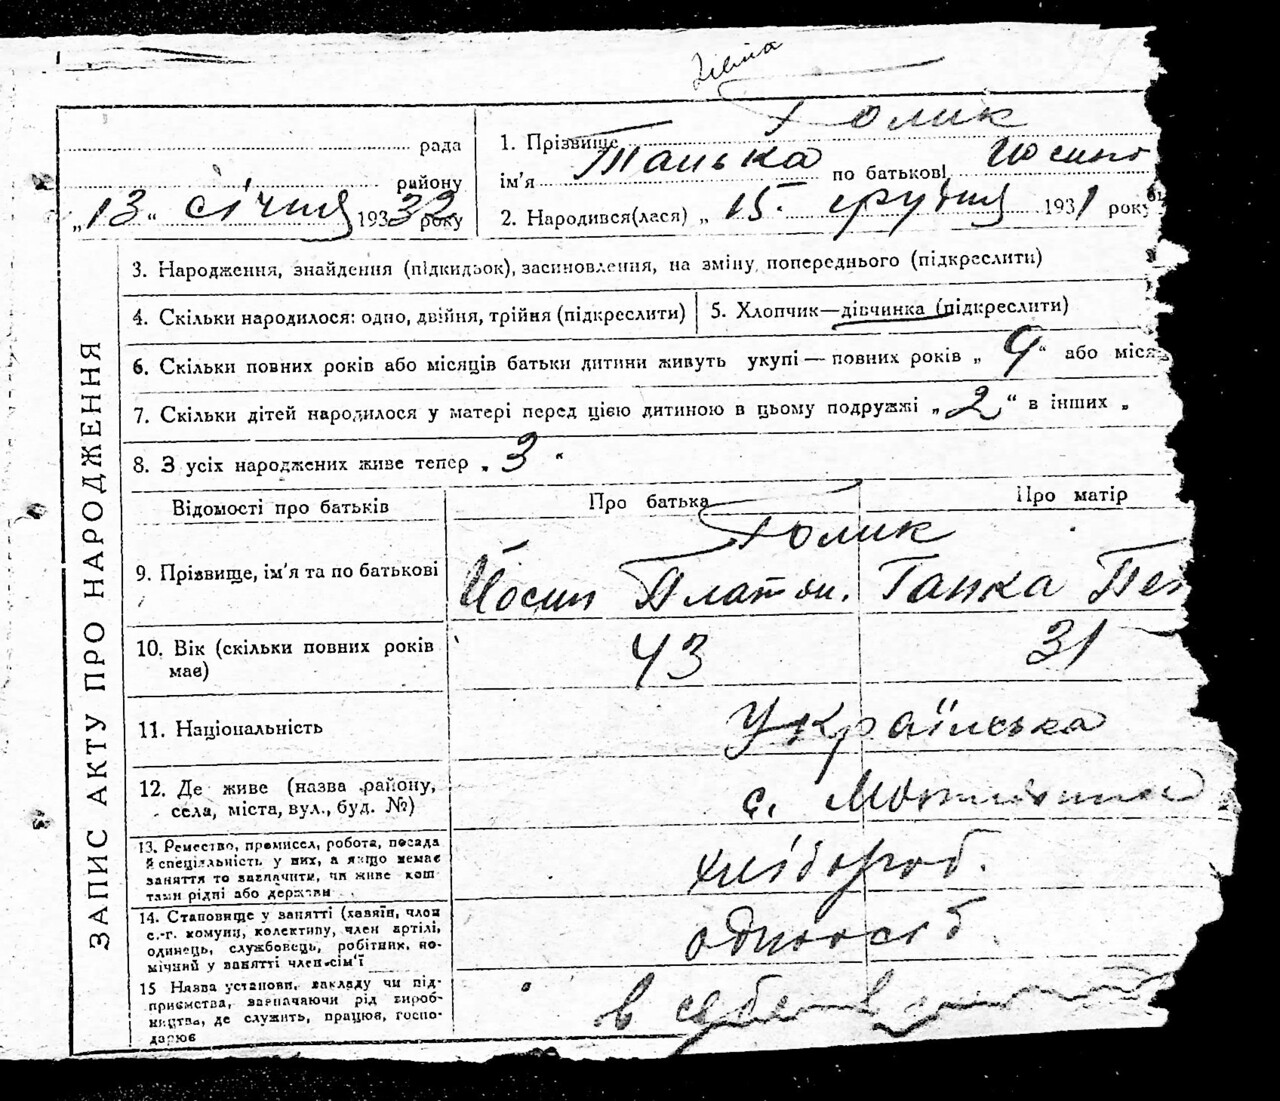 Голик
рада 1. Прізвище
Танька
району ім'я по батькові Йосипо
„13" січня 1932 року 2. Народився(лася) „15. грудня 1931 року
ЗАПИС АКТУ ПРО НАРОДЖЕННЯ
3. Народження, знайдення (підкидьок), засиновлення, на зміну попереднього (підкреслити)
4. Скільки народилося: одно, двійня, трійня (підкреслити) 5. Хлопчик—дівчинка (підкреслити)
6. Скільки повних років або місяців батьки дитини живуть укупі — повних років „9" або міся
7. Скільки дітей народилося у матері перед цією дитиною в цьому подружжі „2" в інших „
8. З усіх народжених живе тепер „3"
Відомості про батьків Про батька Про матір
Голик
9. Прізвище, ім'я та по батькові Йосип Платон. Гапка Пе
10. Вік (скільки повних років має) 43 31
11. Національність Українська
12. Де живе (назва району, с.
села, міста, вул., буд. №)
13. Ремество, промисел, робота, посада хлібороб.
й спеціяльність у них, а якщо немає
заняття то зазначити, чи живе кош
тами рідні або держави
14. Становище у занятті (хазяїн, член одноосіб.
с.-г. комуни, колективу, член артілі,
одинець, службовець, робітник, по-
мічний у занятті член сім'ї
15 Назва установи, закладу чи під-
приємства, зазначаючи рід вироб- в себе в
ництва, де служить, працює, госпо-
дарює